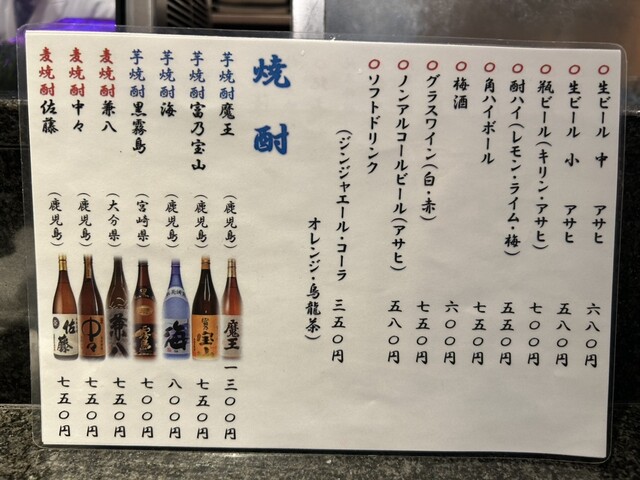 ○ 生ビール 中 アサヒ 六八〇円
○ 生ビール 小 アサヒ 五八〇円
○ 瓶ビール(キリン・アサヒ) 七〇〇円
○ 酎ハイ(レモン・ライム・梅) 五五〇円
○ 角ハイボール 七五〇円
○ 梅酒 六〇〇円
○ グラスワイン(白・赤) 七五〇円
○ ノンアルコールビール(アサヒ) 五八〇円
○ ソフトドリンク
(ジンジャエール・コーラ 三五〇円
オレンジ・烏龍茶)
焼酎
芋焼酎 魔王 (鹿児島) 一三〇〇円
芋焼酎 富乃宝山 (鹿児島) 七五〇円
芋焼酎 海 (鹿児島) 八〇〇円
芋焼酎 黒霧島 (宮崎県) 七〇〇円
麦焼酎 兼八 (大分県) 七五〇円
麦焼酎 中々 (鹿児島) 七五〇円
麦焼酎 佐藤 (鹿児島) 七五〇円
魔王
海
兼八
中々
佐藤